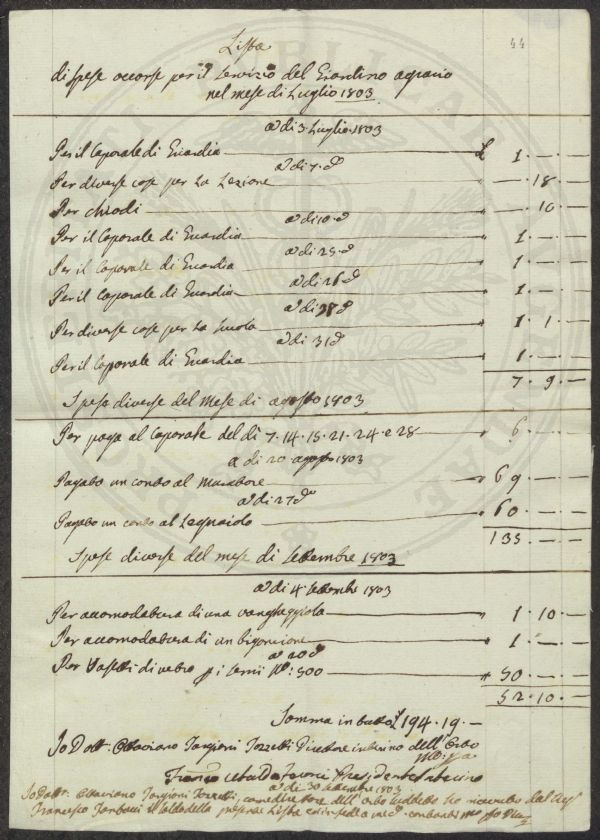 44
Lista
di spese occorse per il servizio del Giardino agrario
nel mese di Luglio 1803
a dì 3 Luglio 1803
Per il Caporale di Guardia £ 1 . — . —
a dì 7 . do
Per diverse cose per La Lezione " — . 18 . —
Per chiodi " — . 10 . —
a dì 10 . do
Per il Caporale di Guardia " 1 . — . —
a dì 25 . do
Per il Caporale di Guardia " 1 . — . —
a dì 26 do
Per il Caporale di Guardia " 1 . — . —
a dì 28 do
Per diverse cose per La Scuola " 1 . 1 . —
a dì 31 do
Per il Caporale di Guardia " 1 . — . —
7 . 9 . —
Spese diverse del Mese di agosto 1803
Per paga al Caporale del dì 7. 14. 15. 21. 24 e 28 " 6 . — . —
a dì 20 agosto 1803
Pagato un conto al Muratore " 69 . — . —
a dì 27 do
Pagato un conto al Legnaiolo " 60 . — . —
135 . — . —
Spese diverse del mese di Settembre 1803
a dì 4 Settembre 1803
Per accomodatura di una vangheggiola " 1 . 10 . —
Per accomodatura di un bigoncione " 1 . — . —
a dì 20 do
Per Vasetti di vetro p i semi No: 500 " 50 . — . —
52 . 10 . —
Somma in tutto £ 194 . 19 . —
Io Dott. Ottaviano Targioni Tozzetti Direttore interino dell'Orto
Mo: ppa
Presidente
a dì 30 settembre 1803
Io Dottr. Ottaviano Targioni Tozzetti, come direttore dell'Orto suddetto ho ricevuto dal Sigr
Francesco la valuta della presente Lista in contanti mo ppa